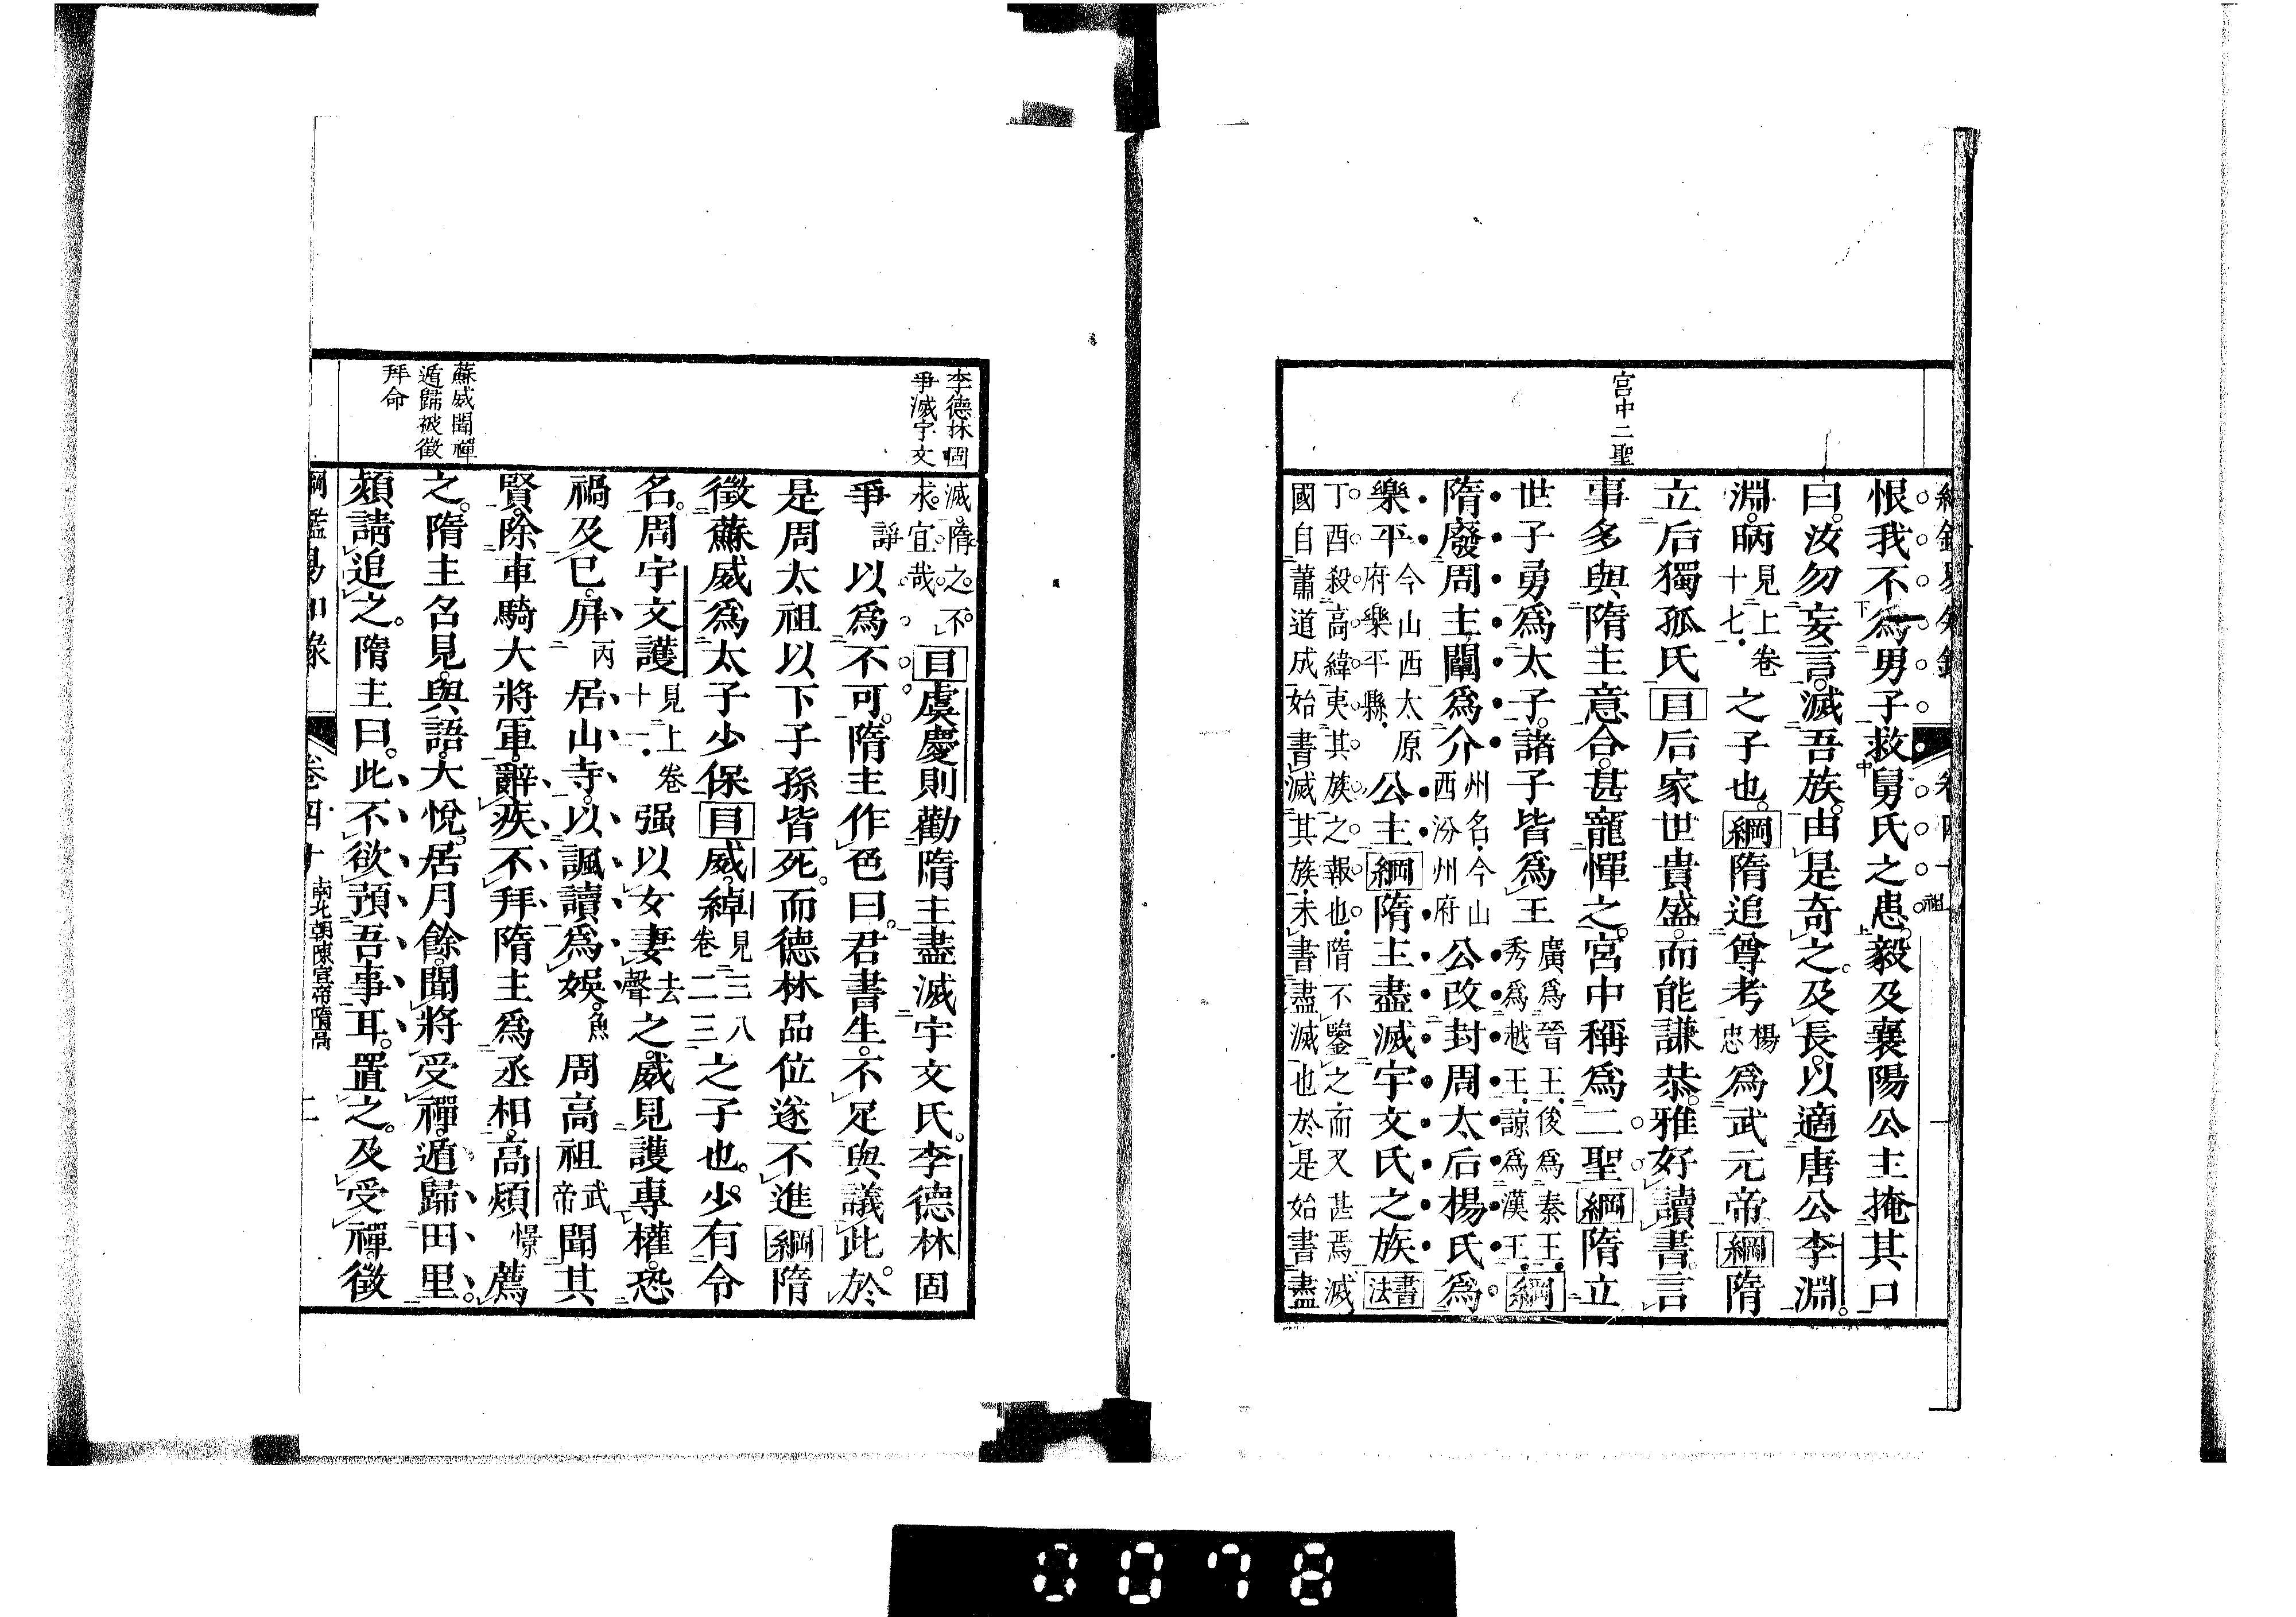 宮中二聖
恨我不爲男子救舅氏之患毅及襄陽公主掩其口
曰汝勿妄言滅吾族由是奇之及長以適唐公李淵
淵昞見上卷十七之子也綱隋追尊考楊忠爲武元帝綱隋
立后獨孤氏目后家世貴盛而能謙恭雅好讀書言
事多與隋主意合甚寵憚之宮中稱爲二聖綱隋立
世子勇爲太子諸子皆爲王廣爲晉王後爲秦王秀爲越王諒爲漢王綱
隋廢周主闡爲介州名今山西汾州府公改封周太后楊氏爲
樂平今山西太原府樂平縣公主綱隋主盡滅宇文氏之族書法
丁酉殺高緯夷其族之報也隋不鑒之而又甚焉滅
國自蕭道成始書滅其族未書盡滅也於是始書盡
李德林固
爭滅宇文
蘇威聞禪
遁歸被徵
拜命
滅隋之不
求宜哉目虞慶則勸隋主盡滅宇文氏李德林固
爭諍以爲不可隋主作色曰君書生不足與議此於
是周太祖以下子孫皆死而德林品位遂不進綱隋
徵蘇威爲太子少保目威綽見三八卷二三之子也少有令
名周宇文護見上卷十一强以女妻去聲之威見護專權恐
禍及已屏丙居山寺以諷讀爲娛魚周高祖武帝聞其
賢除車騎大將軍辭疾不拜隋主爲丞相高熲憬薦
之隋主名見與語大悅居月餘聞將受禪遁歸田里
熲請追之隋主曰此不欲預吾事耳置之及受禪徵
綱鑑易知錄 卷四十 南北朝陳宣帝隋高 二